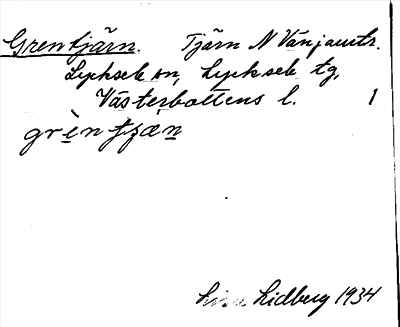 Grentjärn. Tjärn N Vänjaurtr.
Lycksele sn, Lycksele tg,
Västerbottens l. 1
grèntjæn
Lina Lidberg 1934